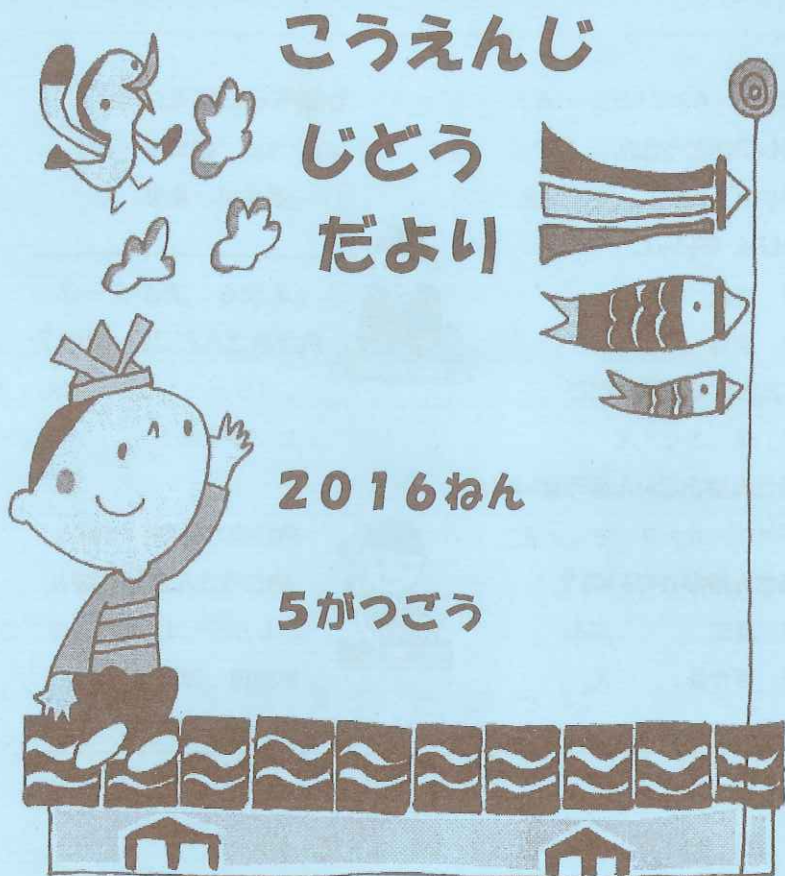 こうえんじ
じどう
だより
2016ねん
5がつごう